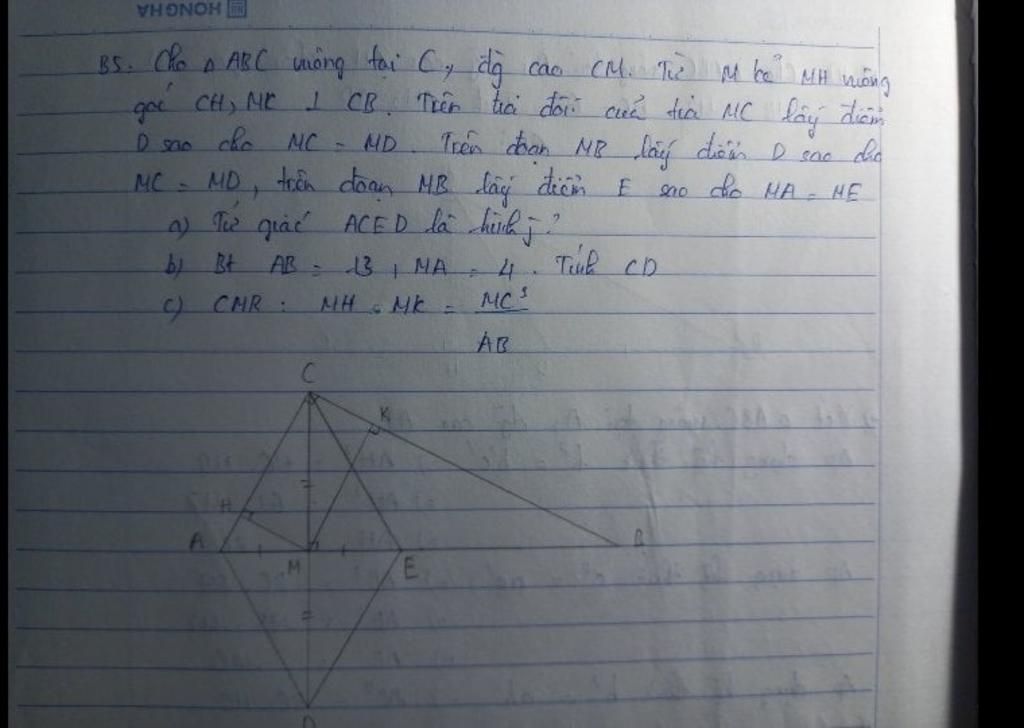 HONGHA
B5. Cho △ ABC vuông tại C, đg cao CM. Từ M kẻ MH vuông
góc CH, MK ⊥ CB. Trên tia đối của tia MC lấy điểm
D sao cho MC = MD. Trên đoạn MB lấy điểm D sao cho
MC = MD, trên đoạn MB lấy điểm E sao cho MA = ME
a) Tứ giác ACED là hình j?
b) Bt AB = 13, MA = 4. Tính CD
c) CMR: MH . MK = MC³
AB
C
K
H
A
M
E
B
D